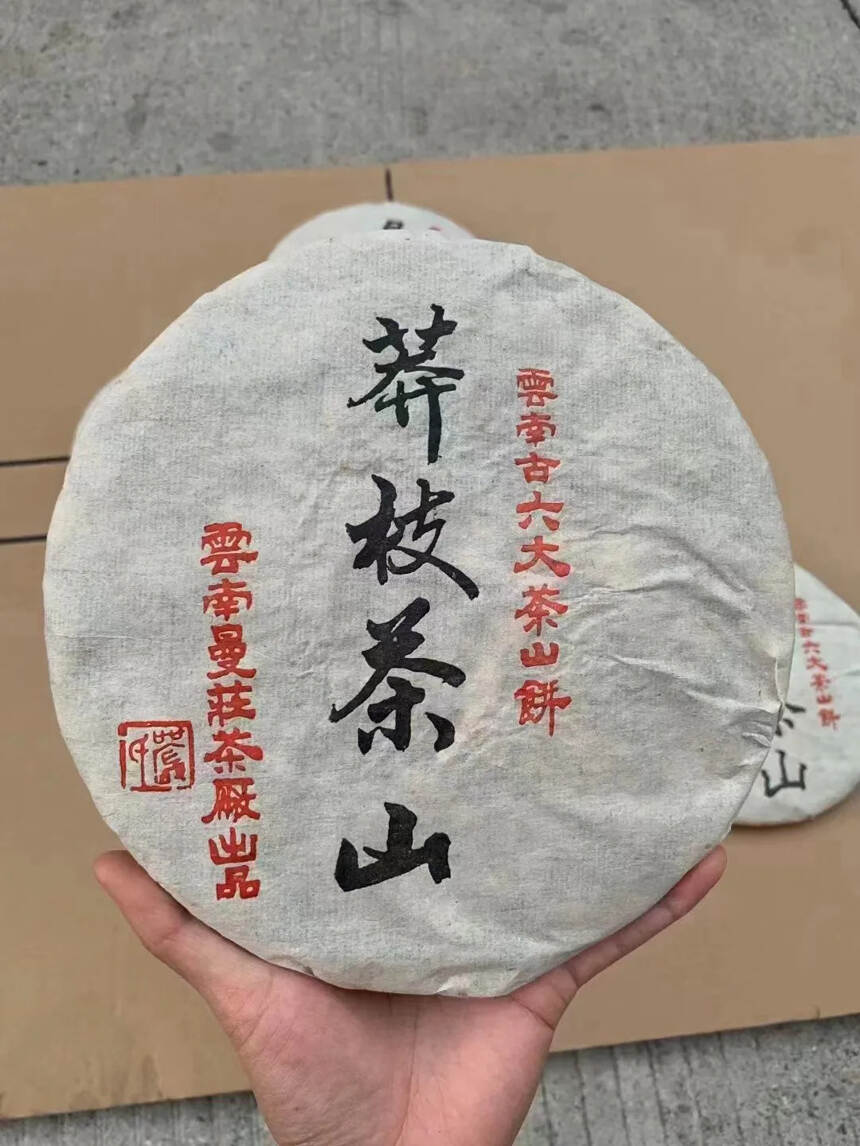 雲南古六大茶山餅
莽枝茶山
雲南曼莊茶厰出品
雲南古六大茶山餅
山